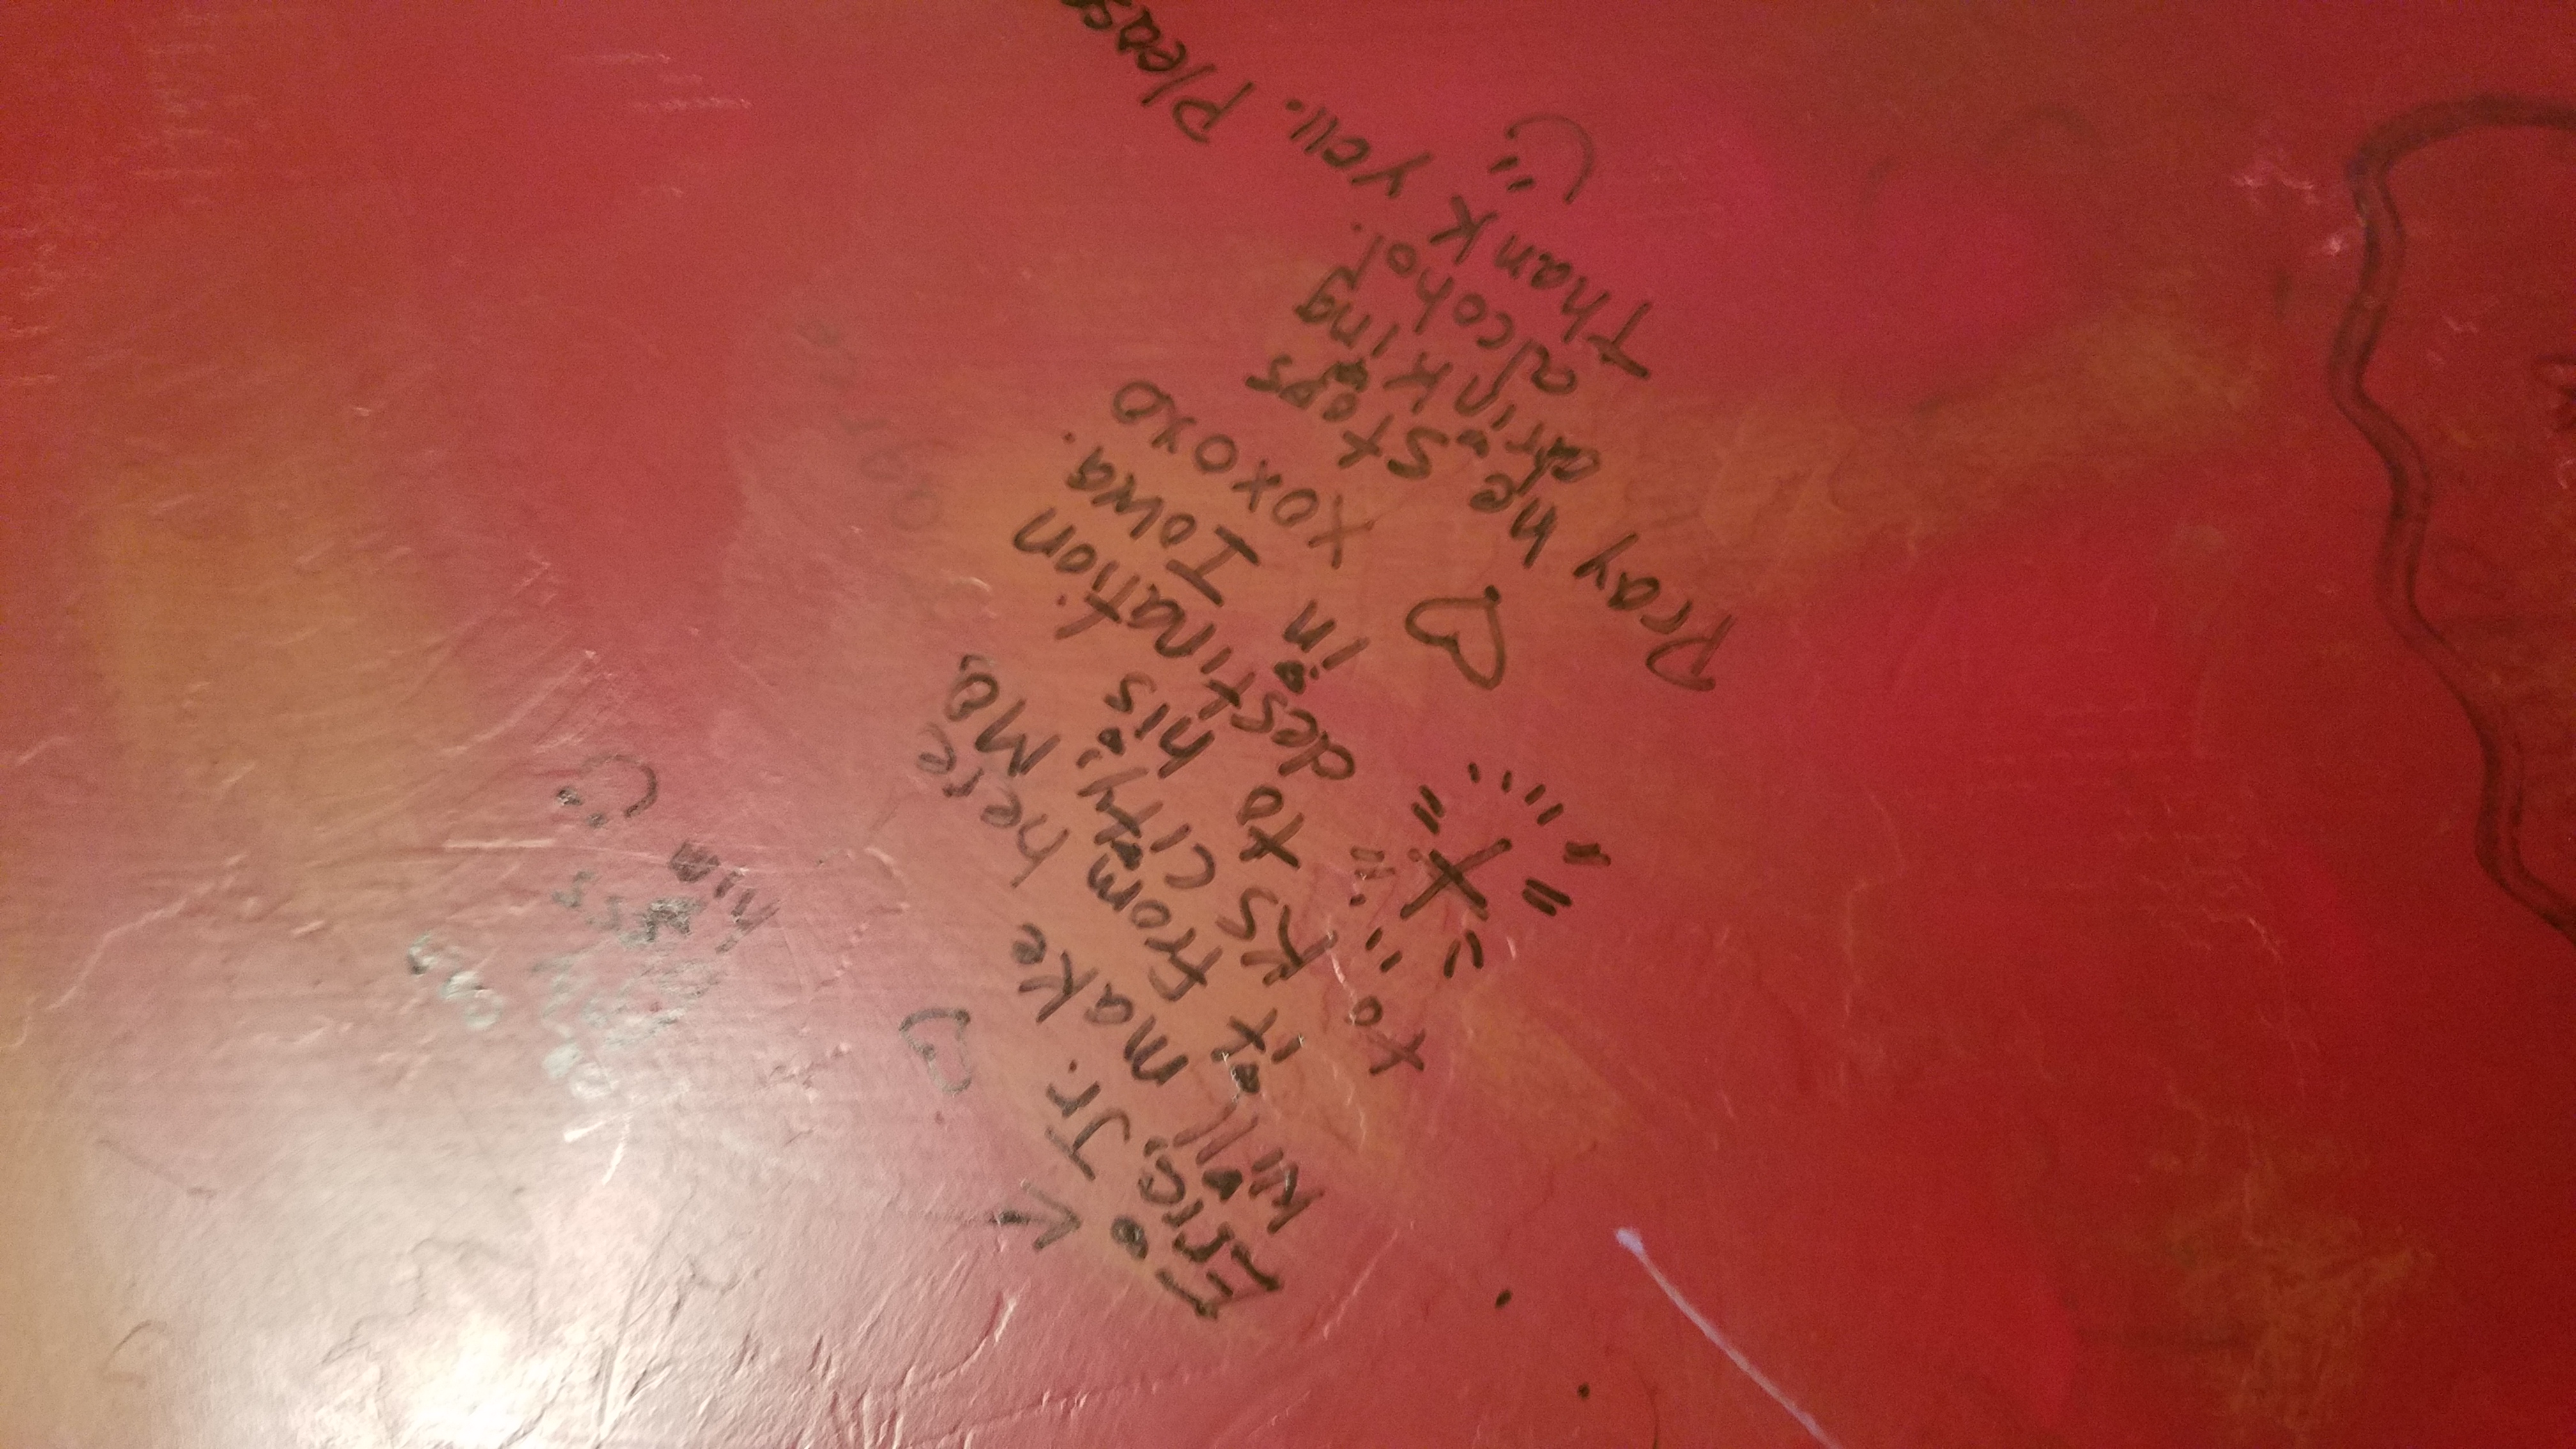 Eric, Jr.
Will make
it from here
to KS City, MO.
to his
destination
in Iowa.
xoxoxo
Pray he stops
drinking
alcohol.
thank you. Please
him